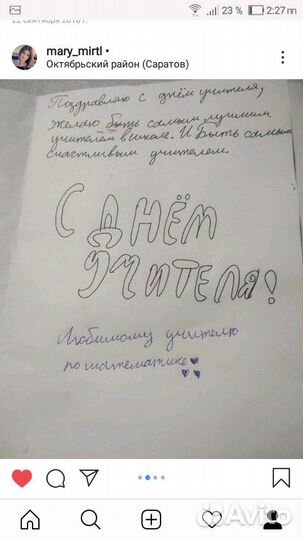 23 % 2:27
22 сентября 2018 г.
mary_mirtl •
Октябрьский район (Саратов)
Поздравляю с днём учителя,
желаю быть самым лучшим
учителем в школе. И быть самым
счастливым учителем.
С ДНЁМ
УЧИТЕЛЯ!
Любимому учителю
по математике
Avito